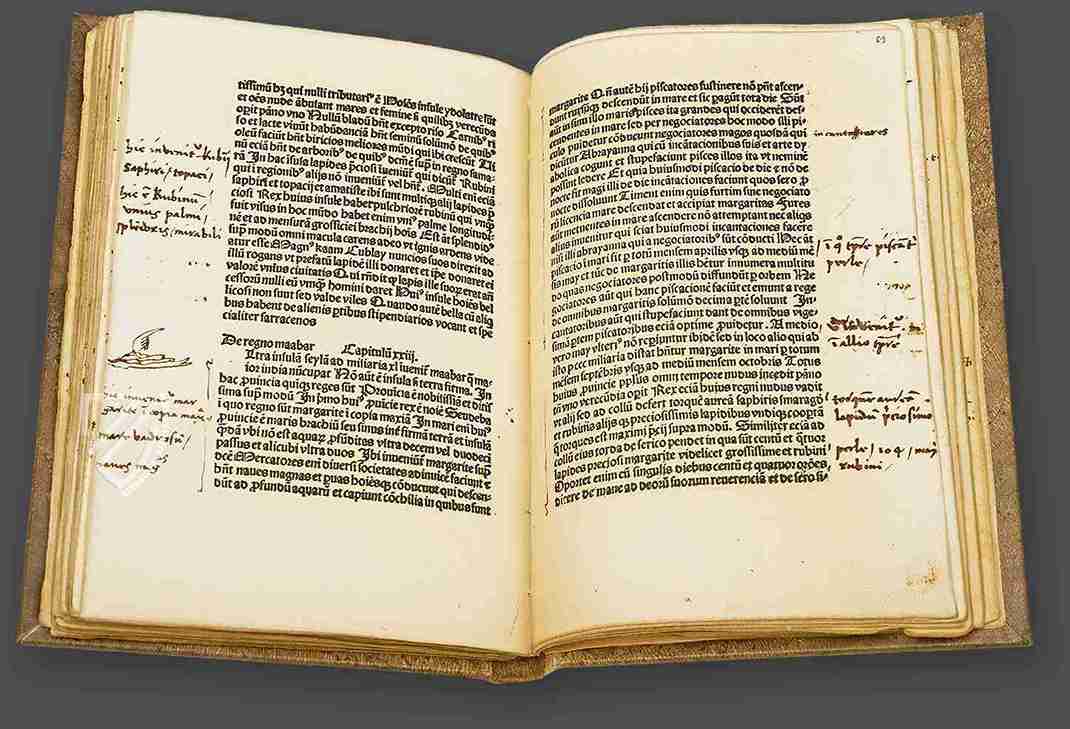 tissimū bʒ qui nulli tributariꝰ ē Hoīes insule ydolatre sūt
et oēs nude ābulant mares et femine sꝫ quilibꝫ verecūda
opit pāno vno Nullū bladū bn̄t excepto riso Carnibꝰ ri
so et lacte viuūt habūdanciā bn̄t seminū solūmō de quibꝰ
oleū faciūt bn̄t biricios meliores mūdi qui ibi crescūt Ui
nū eciā bn̄t de arboribꝰ de quibꝰ
rā In hac īsula lapides p̄ciosi īueniūt̄ qui dicūt̄ Rubini
qui ī regionibꝰ alijs nō īueniūt̄ vel bn̄t Multi eni eciā
saphiri et topacij et amatiste ibi sunt multiqꝫ alij lapides p̄
ciosi Rex huius insule habet pulchriorē rubinū qui vnqꝫ
fuit visus in hoc mūdo habet enim vniꝰ palme longitudi
nē et ad mensurā grossiciei brachij hoīs Est āt splendidꝰ
sup̄ modū omni macula carens adeo vt ignis ardens vide
atur esse Magnꝰ kaam Cublay nuncios suos direxit ad
illū rogans vt prefatū lapidē illi donaret et ip̄e donaret ei
valorē vniꝰ ciuitatis Qui rn̄dit qꝫ lapis ille suoꝝ erat an̄
cessorū nulli eū vmqꝫ homini daret Huiꝰ insule hoīes bel
licosi non sunt sed valde viles Quando autē bella cū aliqͥ
bus habent de alienis ꝑtibus stipendiarios vocant et spe
cialiter sarracenos
De regno maabar Capitulū xxiij.
Ultra insulā seylā ad miliaria xl īuenit̄ maabar q̄ ma
ior india nūcupat̄ Nō aūt ē insula sꝫ terra firma. In
hac ꝓuincia quinqꝫ reges sūt Prouīcia ē nobilissiā et ditis
sima sup̄ modū In pͥmo huiꝰ ꝓuīcie rex ē noīe Seudeba
i quo regno sūt margarite ī copia maxīa In mari eni huiꝰ
ꝓuincie ē maris brachiū seu sinus int̄ firmā terrā et insulā
qͣdā vbi nō est aquaꝝ ꝓfūditas vltra decem vel duodecī
passus et alicubi vltra duos Ibi inueniūt̄ margarite sup̄
dc̄e Mercatores eni diuersi societates adinuicē faciunt ⁊
bn̄t naues magnas et ꝑuas hoīesqꝫ cōducunt qui descen
dūt ad ꝓfundū aquarū et capiunt cōchilia in quibus sunt
hic inveniūt̄ Rubinj
saphiri / topaci /
hic ē Rubinū /
vnius palmi /
splēdoris / mirabili
margarite ī copia maxīa
naues mag
margarite Qn̄ autē hij piscatores sustinere nō pn̄t ascen-
dunt rursusqꝫ descendūt in mare et sic ꝑagūt tota die Sūt
aūt in sinu illo maris pisces ita grandes qui occiderēt des-
cendentes in mare sed per negociatores hoc modo illi pi-
culo ꝓuidetur cōducunt negociatores magos quosdā qui
dicūtur Abrayanna qui cū incātacionibus suis et arte dy-
abolica cogunt et stupefaciunt pisces illos ita vt neminē
possint ledere Et quia huiusmodi piscacio de die ⁊ nō de
nocte fit magi illi de die incātaciones faciunt quos sero ꝓ
nocte dissoluunt Timent enim quis furtim sine negociato
licencia mare descendat et accipiat margaritas Fures
aūt metuentes in mare ascendere nō attemptant nec aliqͥs
alius inuenitur qui sciat huiusmodi incantaciones facere
nisi illi abrayanna qui a negociatoribꝰ sūt cōducti Hec āt
piscacio ī mari fit ꝑ totū mensem aprilis vsqꝫ ad mediū mē
sis may et tūc de margaritis illis hētur innumera multitu
do quas negociatores postmodū diffundūt ꝑ orbem Ne
gociatores aūt qui hanc piscacionē faciūt et emunt a rege
de omnibus margaritis solūmō decima ꝑtē soluunt In-
cantatoribus aūt qui stupefaciunt dant de omnibus vige-
simā ꝑtem piscatoribus eciā optime ꝓuidetur. A medio
vero may vlteriꝰ nō reꝑiuntur ibidē sed in loco alio qui ab
isto ꝑ ccc miliaria distat hn̄tur margarite in mari ꝑ totum
mēsem septēbris vsqꝫ ad mediū mensem octobris Totus
huiꝰ ꝓuincie ppl̄us omni tempore nudus incedit pāno
tn̄ vno verecūdia opit Rex eciā huius regni nudus vadit
vt alij sed ad collū defert torquē aureū saphiris smaragdꝭ
et rubinis alijsqꝫ preciosissimis lapidibus vndiqꝫ cooꝑtā
qͥ torques est maximi p̄cij supra modū. Similiter eciā ad
collū eius torda de serico pendet in qua sūt centū et qͣtuor
lapides preciosi margarite videlicet grossissime et rubini
Oportet enim eū singulis diebus centū et quatuor orōes
dicere de mane ad deorū suorum reuerenciā et de sero si-
incantatores
ī qͦ tp̄re piscāt̄
perle /
ī allio tp̄re
torquem aureū
lapidū p̄ciosimo
perle / 104 / mag
rubini /